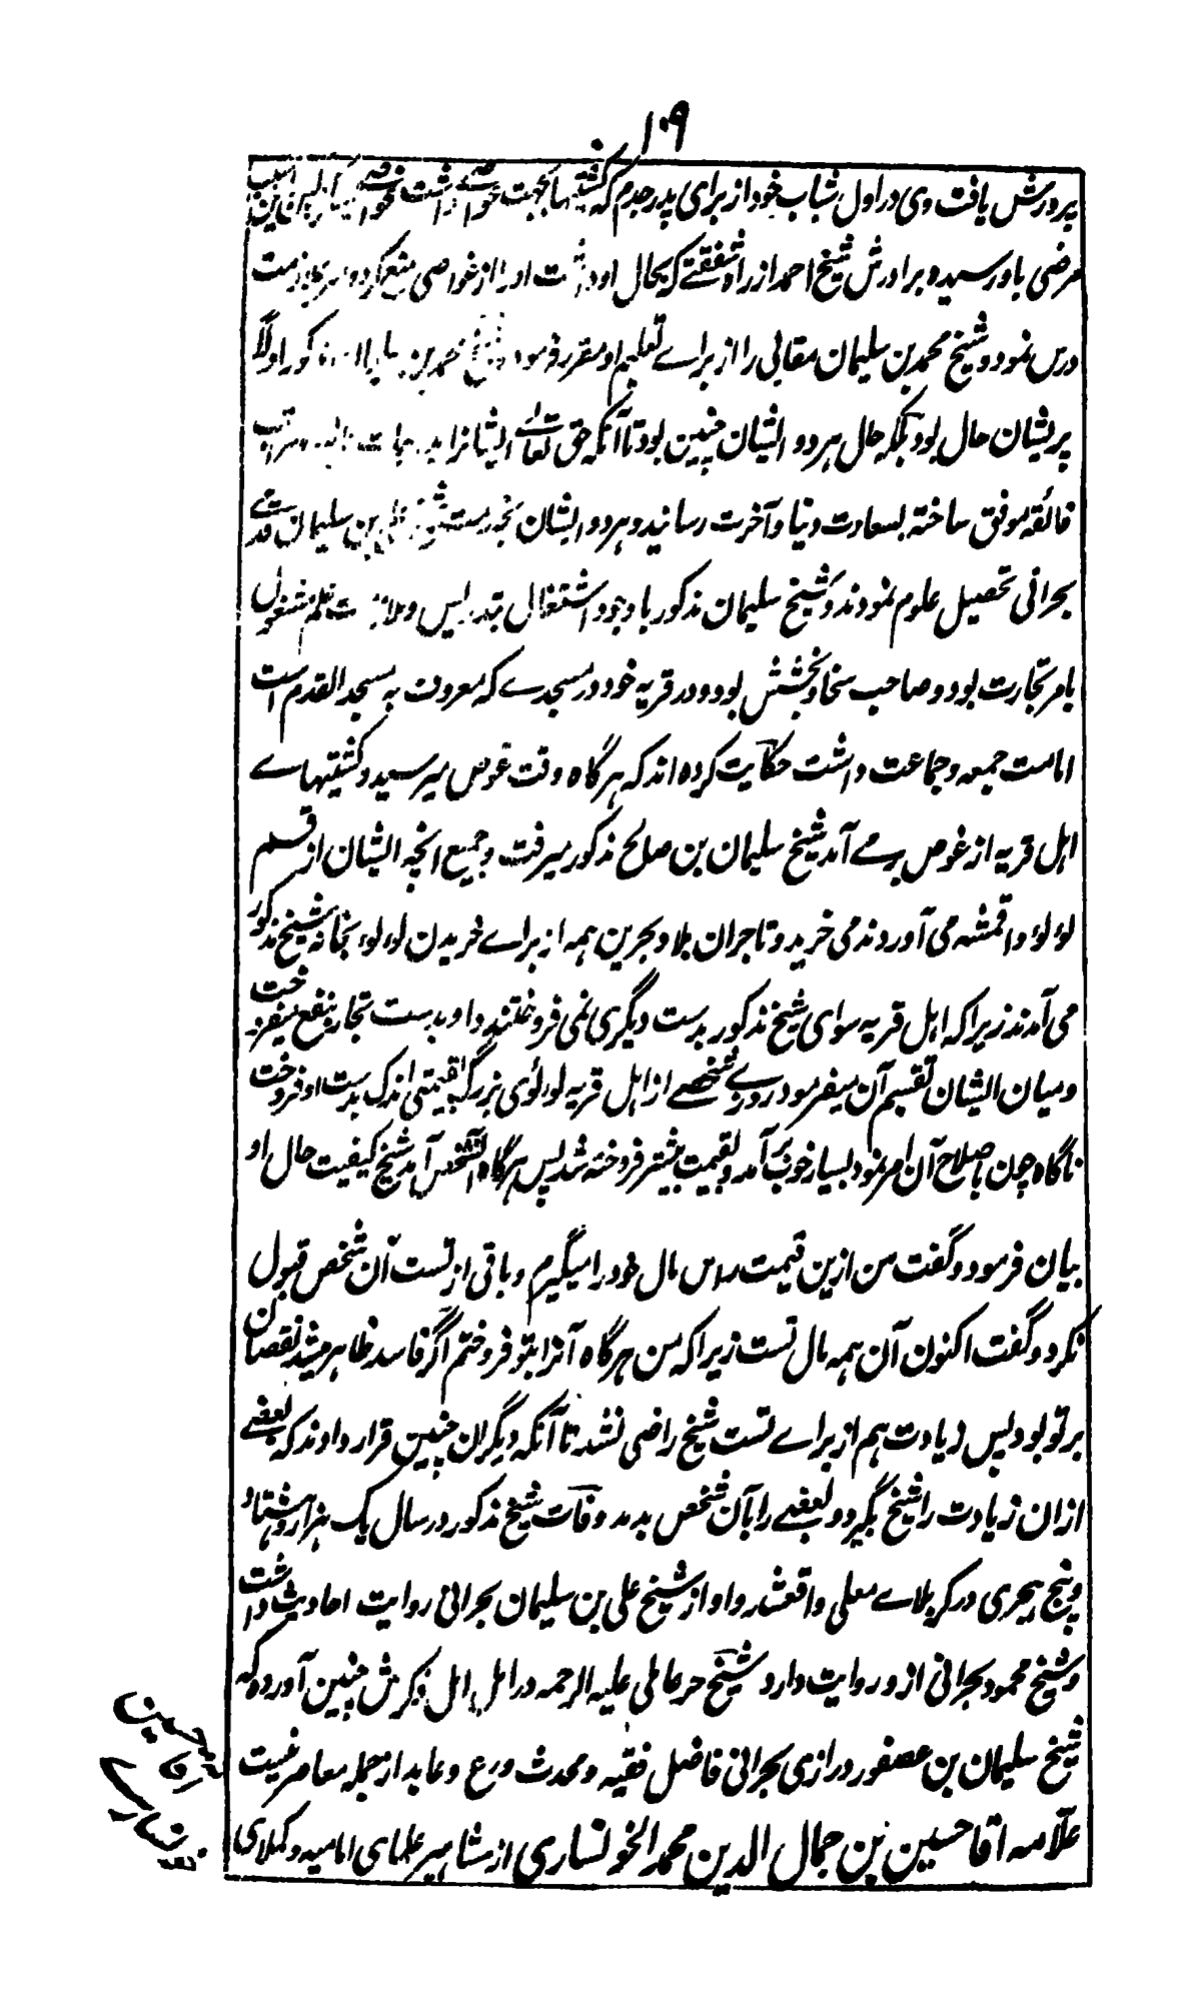 ۱۰۹
پرورش یافت وی در اول شباب خود از برای پدر جدم که کشتیها بجهت غواصی داشت غواصی
مرضی باو رسید و برادرش شیخ احمد از راه شفقتے که بحال او داشت او را از غواصی منع کرد و
درس نمود و شیخ محمد بن سلیمان مقابی را از براے تعلیم او مقرر فرمود شیخ محمد بن سلیمان مذکور اولاً
پریشان حال بود بلکه حال هر دو ایشان چنین بود تا آنکه حق تعالے ایشانرا
فائقه موفق ساخته بسعادت دنیا و آخرت رسانید و هر دو ایشان بخدمت شیخ علی بن سلیمان قدمے
بحرانی تحصیل علوم نمودند و شیخ سلیمان مذکور باوجود اشتغال بتدریس و ملازمت علم مشغول
بامر تجارت بود و صاحب سخا و بخشش بود و در قریه خود در مسجدے که معروف به مسجد القدم است
امامت جمعه و جماعت داشت حکایت کرده اند که هرگاه وقت غوص میرسید و کشتیهاے
اهل قریه از غوص برمے آمد شیخ سلیمان بن صالح مذکور میرفت و جمیع انچه ایشان از قسم
لولوء و اقمشه می آوردند می خرید و تاجران بلاد بحرین همه از براے خریدن لوءلوء بخانه شیخ مذکور
می آمدند زیرا که اهل قریه سوای شیخ مذکور بدست دیگری نمی فروختند و او بدست تجار بنفع میفروخت
و میان ایشان تقسیم آن میفرمود روزے شخصے از اهل قریه لولوئی بزرگ بقیمتی اندک بدست او فروخت
ناگاه چون باصلاح آن امر نمود بسیار خوب برآمد و بقیمت بیشتر فروخته شد پس هرگاه آنشخص آمد شیخ کیفیت حال او
بیان فرمود و گفت من ازین قیمت راس مال خود را میگیرم و باقی از تست آن شخص قبول
نکرد و گفت اکنون آن همه مال تست زیرا که من هرگاه آنرا بتو فروختم اگر فاسد ظاهر میشد نقصان
بر تو بود پس زیادت هم از براے تست شیخ راضی نشد تا آنکه دیگران چنین قرار دادند که بعضے
ازان زیادت را شیخ بگیرد و بعضے را بآن شخص بدهد وفات شیخ مذکور در سال یک هزار و هشتاد
و پنج هجری در کربلاے معلی واقعشد و او از شیخ علی بن سلیمان بحرانی روایت احادیث داشت
و شیخ محمود بحرانی ازو روایت دارد و شیخ حر عاملی علیه الرحمه در امل الامل ذکرش چنین آورده که
شیخ سلیمان بن عصفور درازی بحرانی فاضل فقیه و محدث ورع و عابد از جمله معاصرینست
علامه آقا حسین بن جمال الدین محمد الخونساری از مشاهیر علمای امامیه و کملای
آقا حسین
خونساری